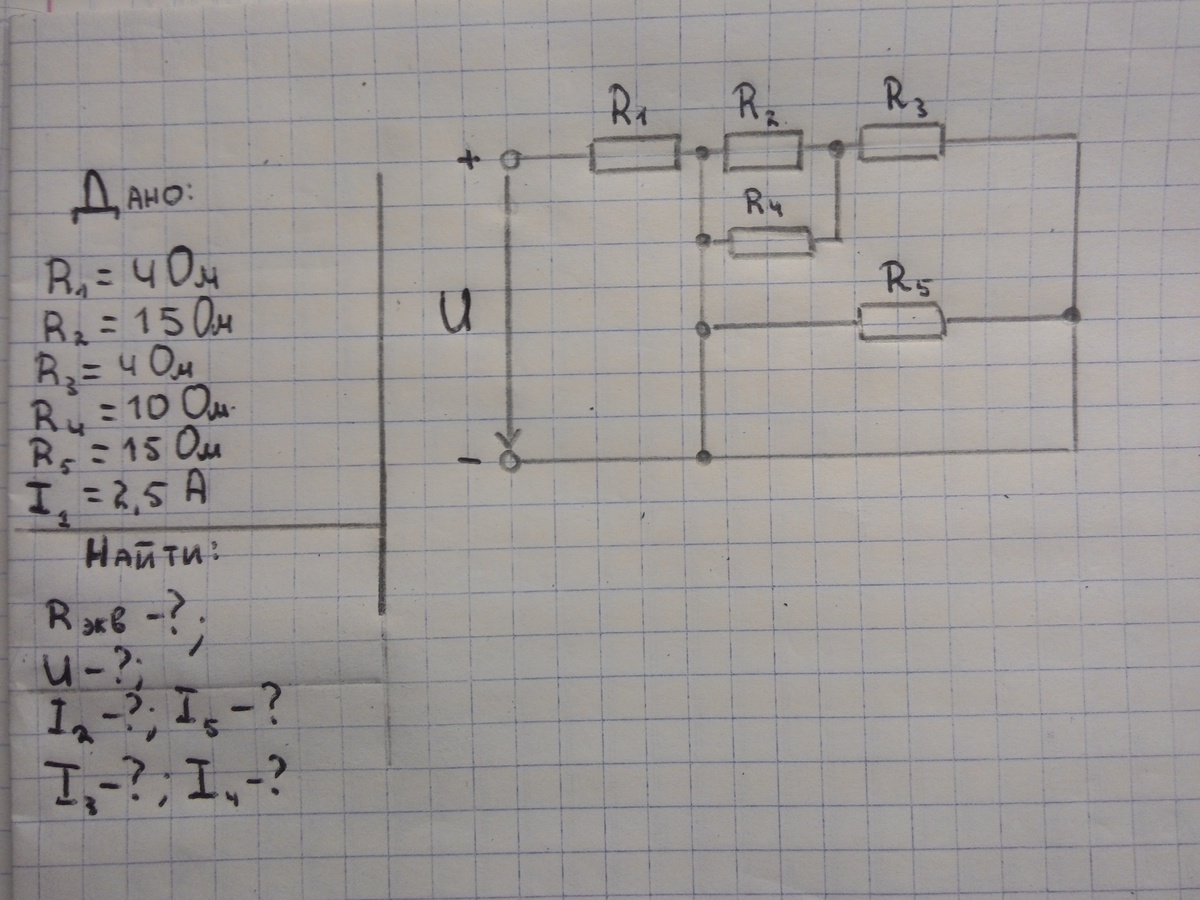 Дано:
R₁ = 4 Ом
R₂ = 15 Ом
R₃ = 4 Ом
R₄ = 10 Ом.
R₅ = 15 Ом
I₁ = 2,5 А
Найти:
Rэкв - ?;
U - ?;
I₂ - ?; I₅ - ?
I₃ - ?; I₄ - ?
R₁ R₂ R₃
+
R₄
R₅
U
-